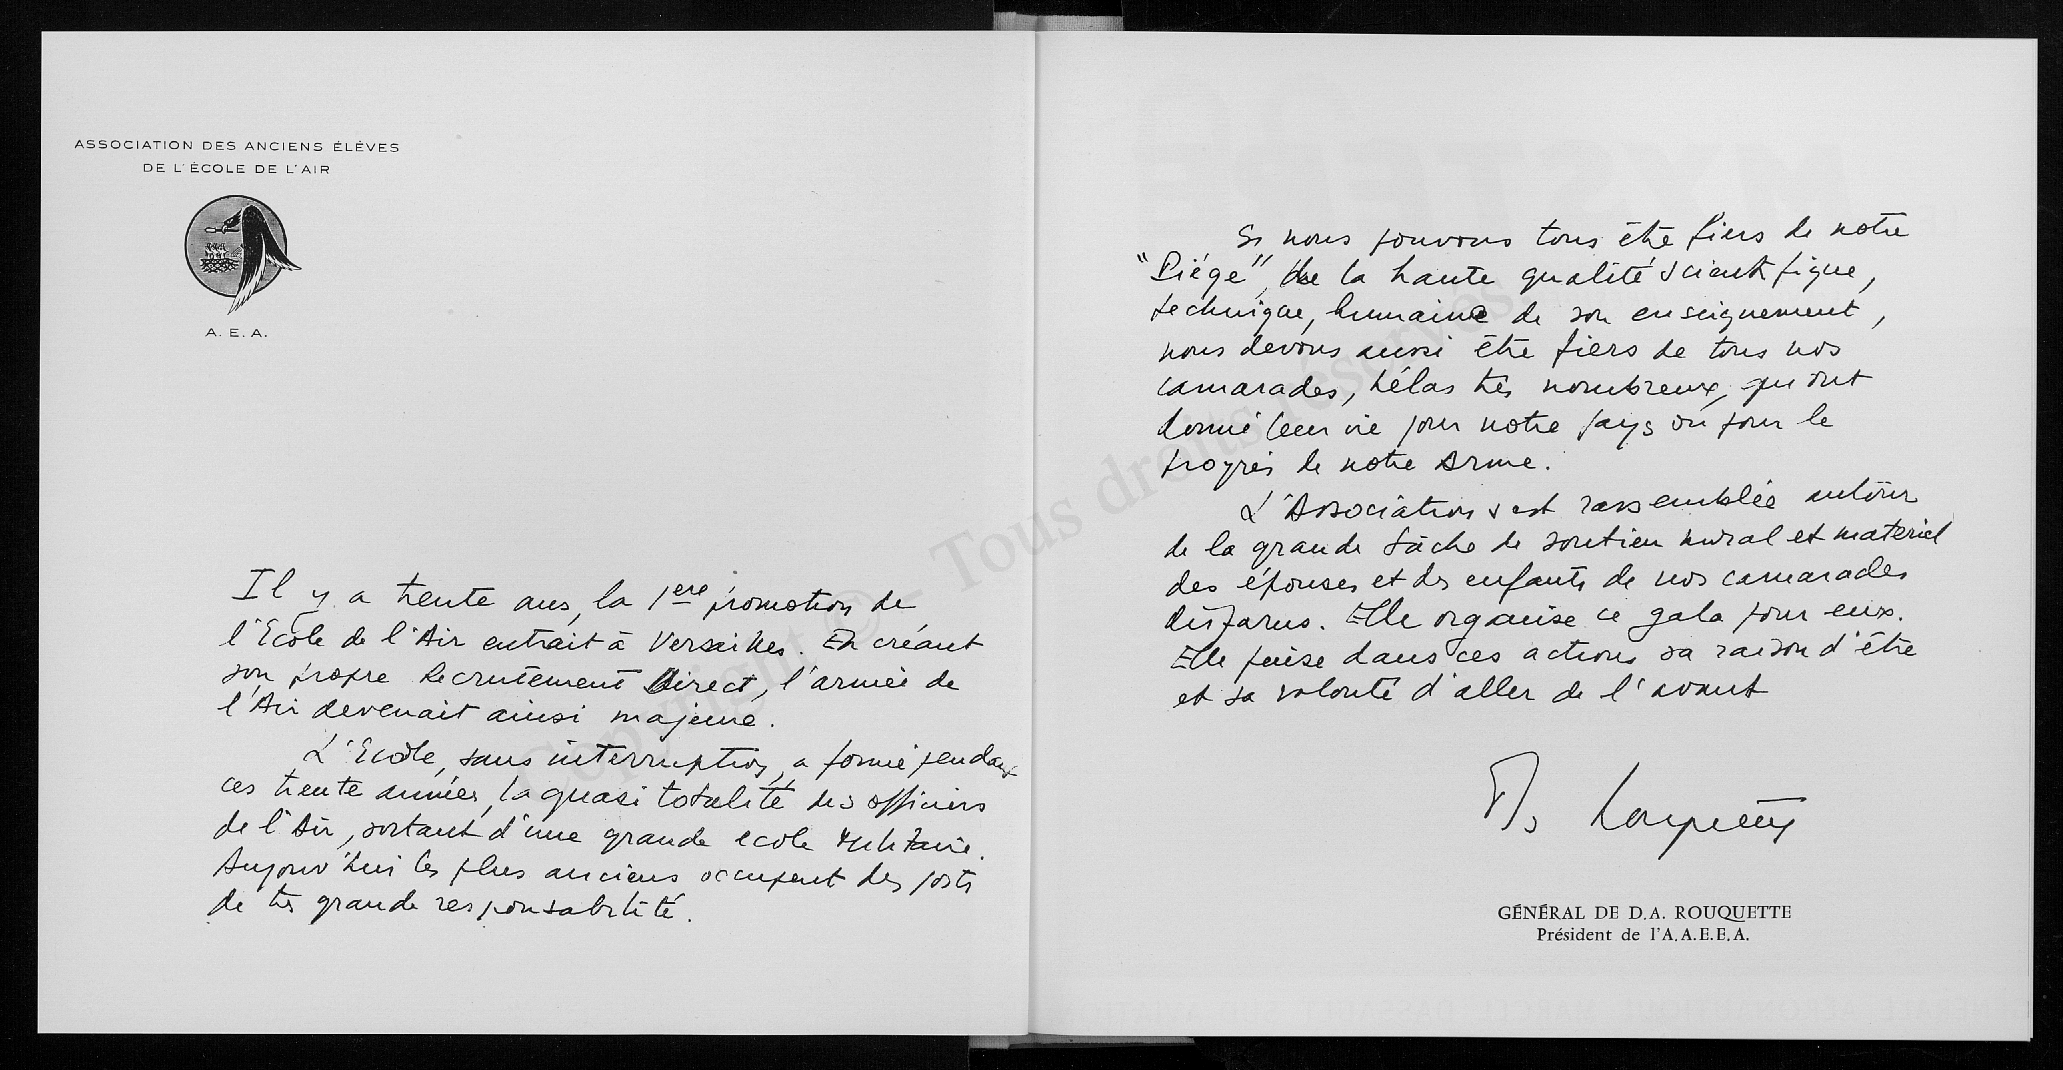 ASSOCIATION DES ANCIENS ÉLÈVES
DE L'ÉCOLE DE L'AIR
A. E. A.
Il y a trente ans, la 1ere promotion de
l'Ecole de l'Air entrait à Versailles. En créant
son propre Recrutement Direct, l'armée de
l'Air devenait ainsi majeure.
L'Ecole, sans interruption, a formé pendant
ces trente années, la quasi totalité des officiers
de l'Air, sortant d'une grande ecole Militaire.
Aujourd'hui les plus anciens occupent des postes
de très grande responsabilité.
Si nous pouvons tous être fiers de notre
"Piège", de la haute qualité scientifique,
technique, humaine de son enseignement,
nous devons aussi être fiers de tous nos
camarades, hélas très nombreux, qui ont
donné leur vie pour notre pays ou pour le
progrès de notre Arme.
L'Association s'est rassemblée autour
de la grande tâche de soutien moral et matériel
des épouses et des enfants de nos camarades
disparus. Elle organise ce gala pour eux.
Elle puise dans ces actions sa raison d'être
et sa volonté d'aller de l'avant
Rouquette
GÉNÉRAL DE D.A. ROUQUETTE
Président de l'A.A.E.E.A.
Copyright © - Tous droits réservés